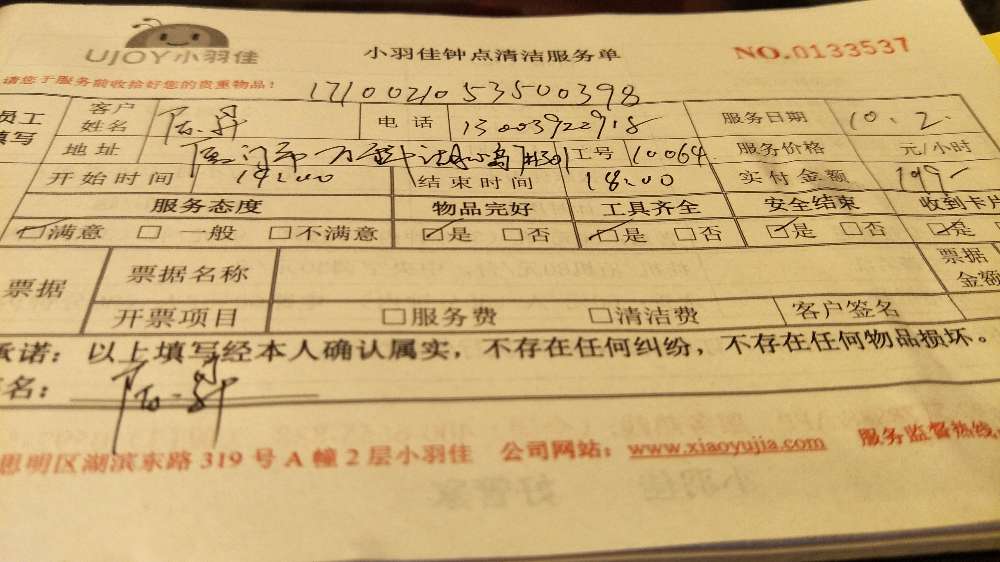 UJOY小羽佳 小羽佳钟点清洁服务单 NO.0133537
请您于服务前收拾好您的贵重物品!
17100210535500398
员工填写 客户姓名 电话 13003922918 服务日期 10.2.
地址 工号 10064 服务价格 元/小时
开始时间 14:00 结束时间 18:00 实付金额 199-
服务态度 物品完好 工具齐全 安全结束 收到卡片
☑满意 □一般 □不满意 ☑是 □否 ☑是 □否 ☑是 □否 ☑是
票据 票据名称 票据金额
开票项目 □服务费 □清洁费 客户签名
承诺：以上填写经本人确认属实，不存在任何纠纷，不存在任何物品损坏。
名：
思明区湖滨东路 319 号 A 幢 2 层小羽佳 公司网站：www.xiaoyujia.com 服务监督热线